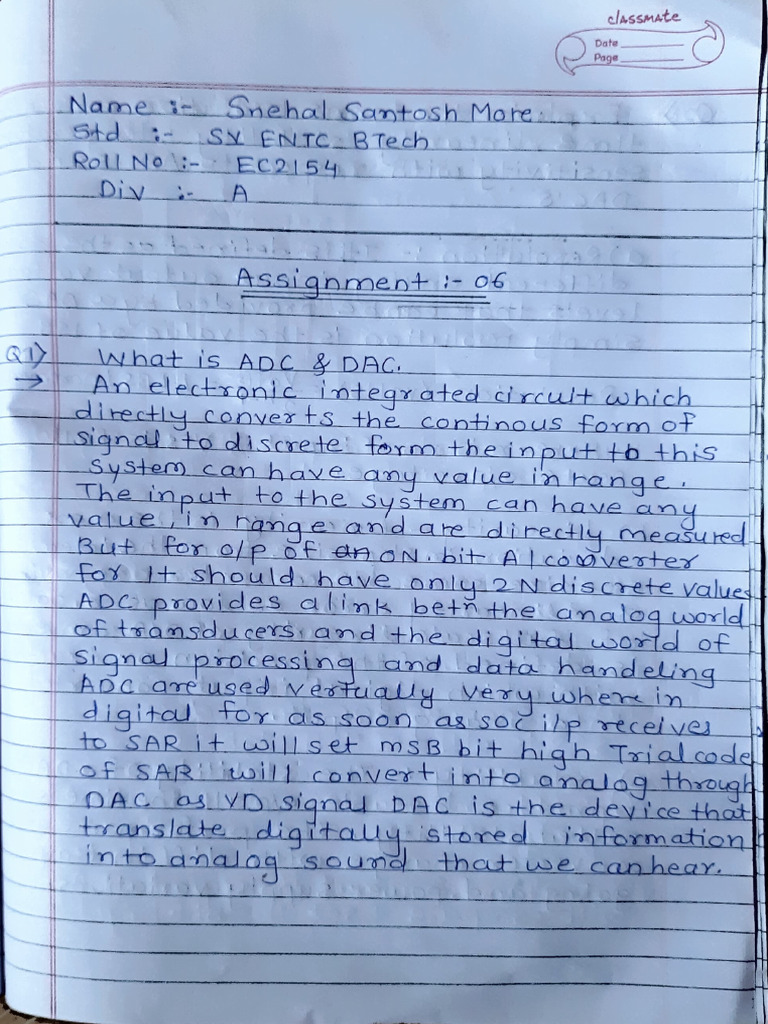 classmate
Date
Page
Name :- Snehal Santosh More
Std :- SY ENTC BTech
Roll No :- EC2154
Div :- A
Assignment :- 06
Q1) What is ADC & DAC.
→ An electronic integrated circuit which
directly converts the continous form of
signal to discrete form the input to this
system can have any value in range.
The input to the system can have any
value, in range and are directly measured
But for o/p of an ON bit A| converter
for It should have only 2N discrete values
ADC provides a link betn the analog world
of transducers and the digital world of
signal processing and data handeling
ADC are used vertually very where in
digital for as soon as soc i/p receives
to SAR it will set MSB bit high Trial code
of SAR will convert into analog through
DAC as VD signal DAC is the device that
translate digitally stored information
into analog sound that we can hear.